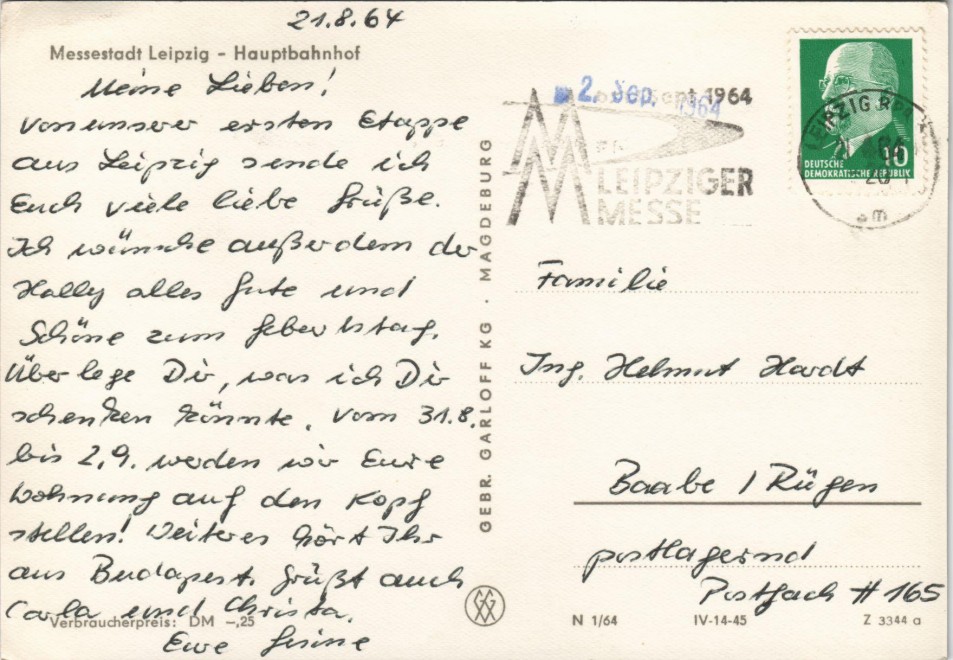 21.8.64
Messestadt Leipzig - Hauptbahnhof
Meine Lieben!
Von unserer ersten Etappe
aus Leipzig sende ich
Euch viele liebe Grüße.
Ich wünsche außerdem der
Hally alles Gute und
Schöne zum Geburtstag.
Überlege Dir, was ich Dir
schenken könnte. Vom 31.8.
bis 2.9. werden wir Eure
Wohnung auf den Kopf
stellen! Weiteres hört Ihr
aus Budapest. Grüßt auch
Carla und Christa.
Verbraucherpreis: DM -,25
Eure
GEBR. GARLOFF KG · MAGDEBURG
2. Sep. 1964
1964
LEIPZIGER
MESSE
LEIPZIG
DEUTSCHE 10
DEMOKRATISCHE REPUBLIK
Familie
Ing. Helmut Hardt
Baabe / Rügen
postlagernd
Postfach # 165
N 1/64 IV-14-45 Z 3344 a